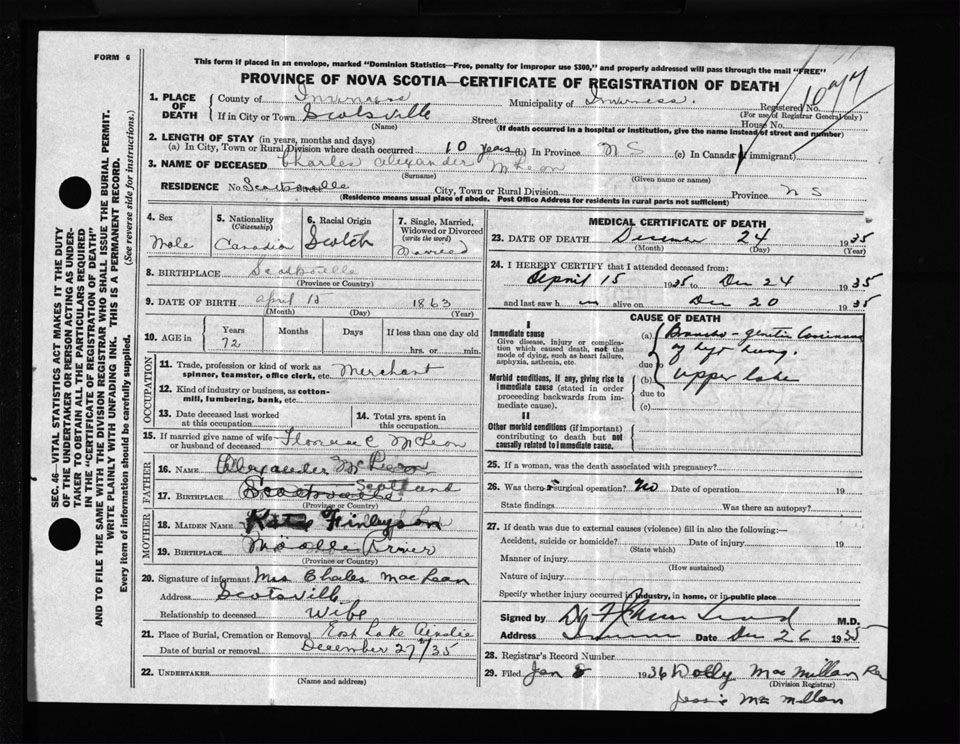 FORM 6
This form if placed in an envelope, marked "Dominion Statistics—Free, penalty for improper use $300," and properly addressed will pass through the mail "FREE"
PROVINCE OF NOVA SCOTIA—CERTIFICATE OF REGISTRATION OF DEATH
SEC. 46—VITAL STATISTICS ACT MAKES IT THE DUTY
OF THE UNDERTAKER OR PERSON ACTING AS UNDER-
TAKER TO OBTAIN ALL THE PARTICULARS REQUIRED
IN THE "CERTIFICATE OF REGISTRATION OF DEATH"
AND TO FILE THE SAME WITH THE DIVISION REGISTRAR WHO SHALL ISSUE THE BURIAL PERMIT.
WRITE PLAINLY WITH UNFADING INK. THIS IS A PERMANENT RECORD.
Every item of information should be carefully supplied. (See reverse side for instructions.)
1. PLACE OF DEATH County of Inverness Municipality of Inverness. Registered No.
(For use of Registrar General only)
If in City or Town Scotsville Street House No.
(Name) (If death occurred in a hospital or institution, give the name instead of street and number)
2. LENGTH OF STAY (in years, months and days)
(a) In City, Town or Rural Division where death occurred 10 years (b) In Province N S (c) In Canada (if immigrant)
3. NAME OF DECEASED Charles Alexander McLean
(Surname) (Given name or names)
RESIDENCE No. Scotsville City, Town or Rural Division Province N S
(Residence means usual place of abode. Post Office Address for residents in rural parts not sufficient)
4. Sex Male
5. Nationality (Citizenship) Canadian
6. Racial Origin Scotch
7. Single, Married, Widowed or Divorced (write the word) Married
8. BIRTHPLACE Scotsville
(Province or Country)
9. DATE OF BIRTH April 15 1863
(Month) (Day) (Year)
10. AGE in Years 72 Months Days If less than one day old
hrs. or min.
OCCUPATION
11. Trade, profession or kind of work as spinner, teamster, office clerk, etc. Merchant
12. Kind of industry or business, as cotton-mill, lumbering, bank, etc.
13. Date deceased last worked at this occupation
14. Total yrs. spent in this occupation
15. If married give name of wife or husband of deceased Florence C McLean
FATHER
16. NAME Alexander McLean
17. BIRTHPLACE Scotland
(Province or Country)
MOTHER
18. MAIDEN NAME Finlayson
19. BIRTHPLACE Middle River
(Province or Country)
20. Signature of informant Mrs Charles MacLean
Address Scotsville
Relationship to deceased Wife
21. Place of Burial, Cremation or Removal East Lake Ainslie
Date of burial or removal December 27th/35
22. UNDERTAKER
(Name and address)
MEDICAL CERTIFICATE OF DEATH
23. DATE OF DEATH December 24 1935
(Month) (Day) (Year)
24. I HEREBY CERTIFY that I attended deceased from:
April 15 1935 to Dec 24 1935
and last saw h im alive on Dec 20 1935
CAUSE OF DEATH
I
Immediate cause
Give disease, injury or complication which caused death, not the mode of dying, such as heart failure, asphyxia, asthenia, etc.
(a) Broncho-genetic Carcinoma
of left lung.
due to
Morbid conditions, if any, giving rise to immediate cause (stated in order proceeding backwards from immediate cause).
(b) Upper lobe
due to
(c)
II
Other morbid conditions (if important) contributing to death but not causally related to immediate cause.
25. If a woman, was the death associated with pregnancy?
26. Was there a surgical operation? No Date of operation 19
State findings Was there an autopsy?
27. If death was due to external causes (violence) fill in also the following:—
Accident, suicide or homicide? Date of injury 19
(State which)
Manner of injury
(How sustained)
Nature of injury
Specify whether injury occurred in industry, in home, or in public place
Signed by M.D.
Address Inverness Date Dec 26 1935
28. Registrar's Record Number
29. Filed Jan 8 1936 Dolly MacMillan
(Division Registrar)
Jessie MacMillan